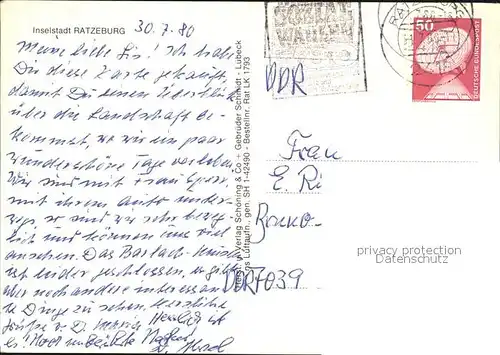 Inselstadt RATZEBURG
30.7.80
Meine liebe Lis! Ich habe
Dir diese Karte gekauft,
damit Du einen Überblick
über die Landschaft be-
kommst, wo wir ein paar
wunderschöne Tage verleben.
Wir sind mit Frau
mit ihrem Auto unter-
wegs so sind wir sehr beweg-
lich und können uns viel
ansehen. Das Barlach-Haus
ist leider geschlossen, es gibt
aber noch andere interessan-
te Dinge zu sehen. Herzliche
Grüße v. D. Herrlich ist
es! Noch unberührte Natur!
Verlag Schöning & Co + Gebrüder Schmidt - Lübeck
Luftaufn., gen. SH 1-42490 - Bestellnr. Rat LK 1793
WAHLEN
50
DEUTSCHE BUNDESPOST
DDR
Frau
E. Ri
DDR 7039
privacy protection
Datenschutz